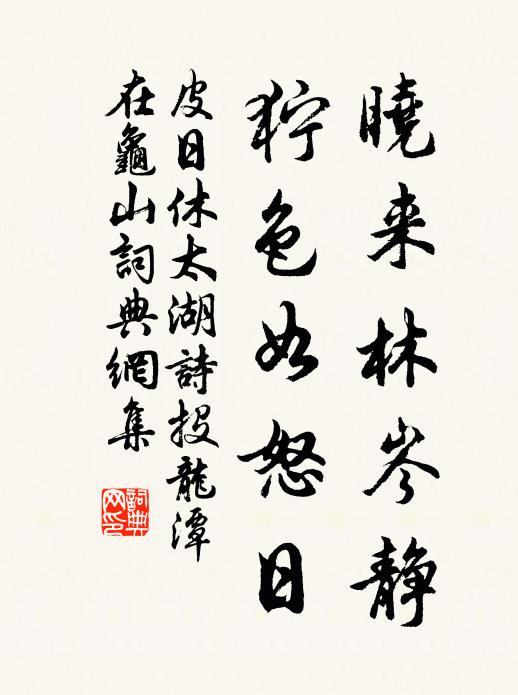 曉来林岑静
狞色如怒日
皮日休太湖詩投龍潭
在龜山詞典網集
詞典
网印